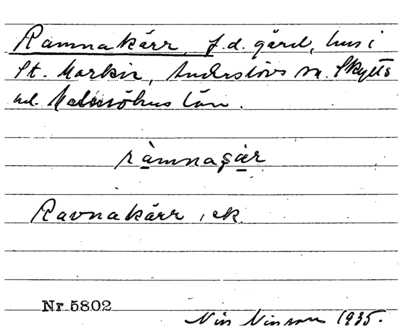 Ramnakärr, f.d. gård, hus i
St. Markie, Anderslövs sn. Skytts
hd. Malmöhus län.
ràmnaçär
Ravnakärr, ek.
Nr 5802
Nils Nilsson 1935.